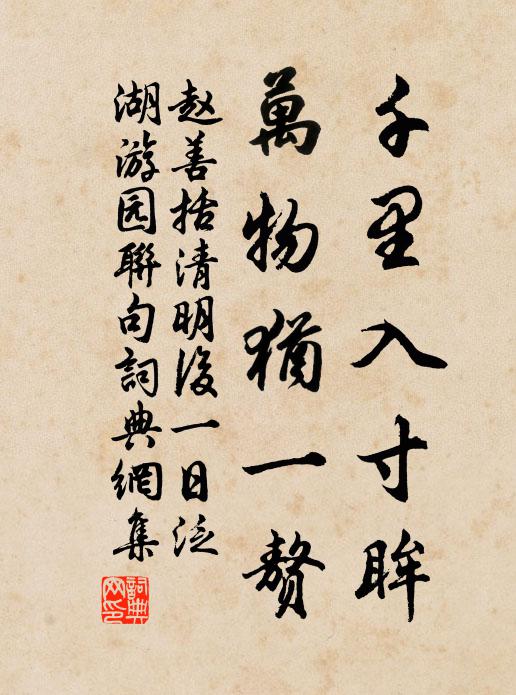 千里入寸眸
萬物猶一贅
赵善括清明後一日泛
湖游园聯句詞典網集
詞典網印